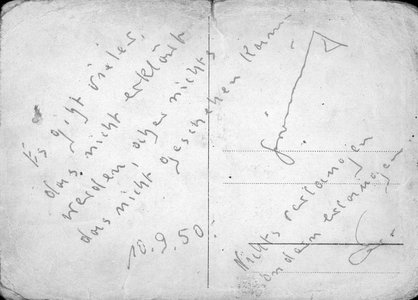 Es gibt vieles,
das nicht erklärt
werden, aber nichts
das nicht geschehen kann
10.9.50.
Nichts verlangen
sondern erlangen